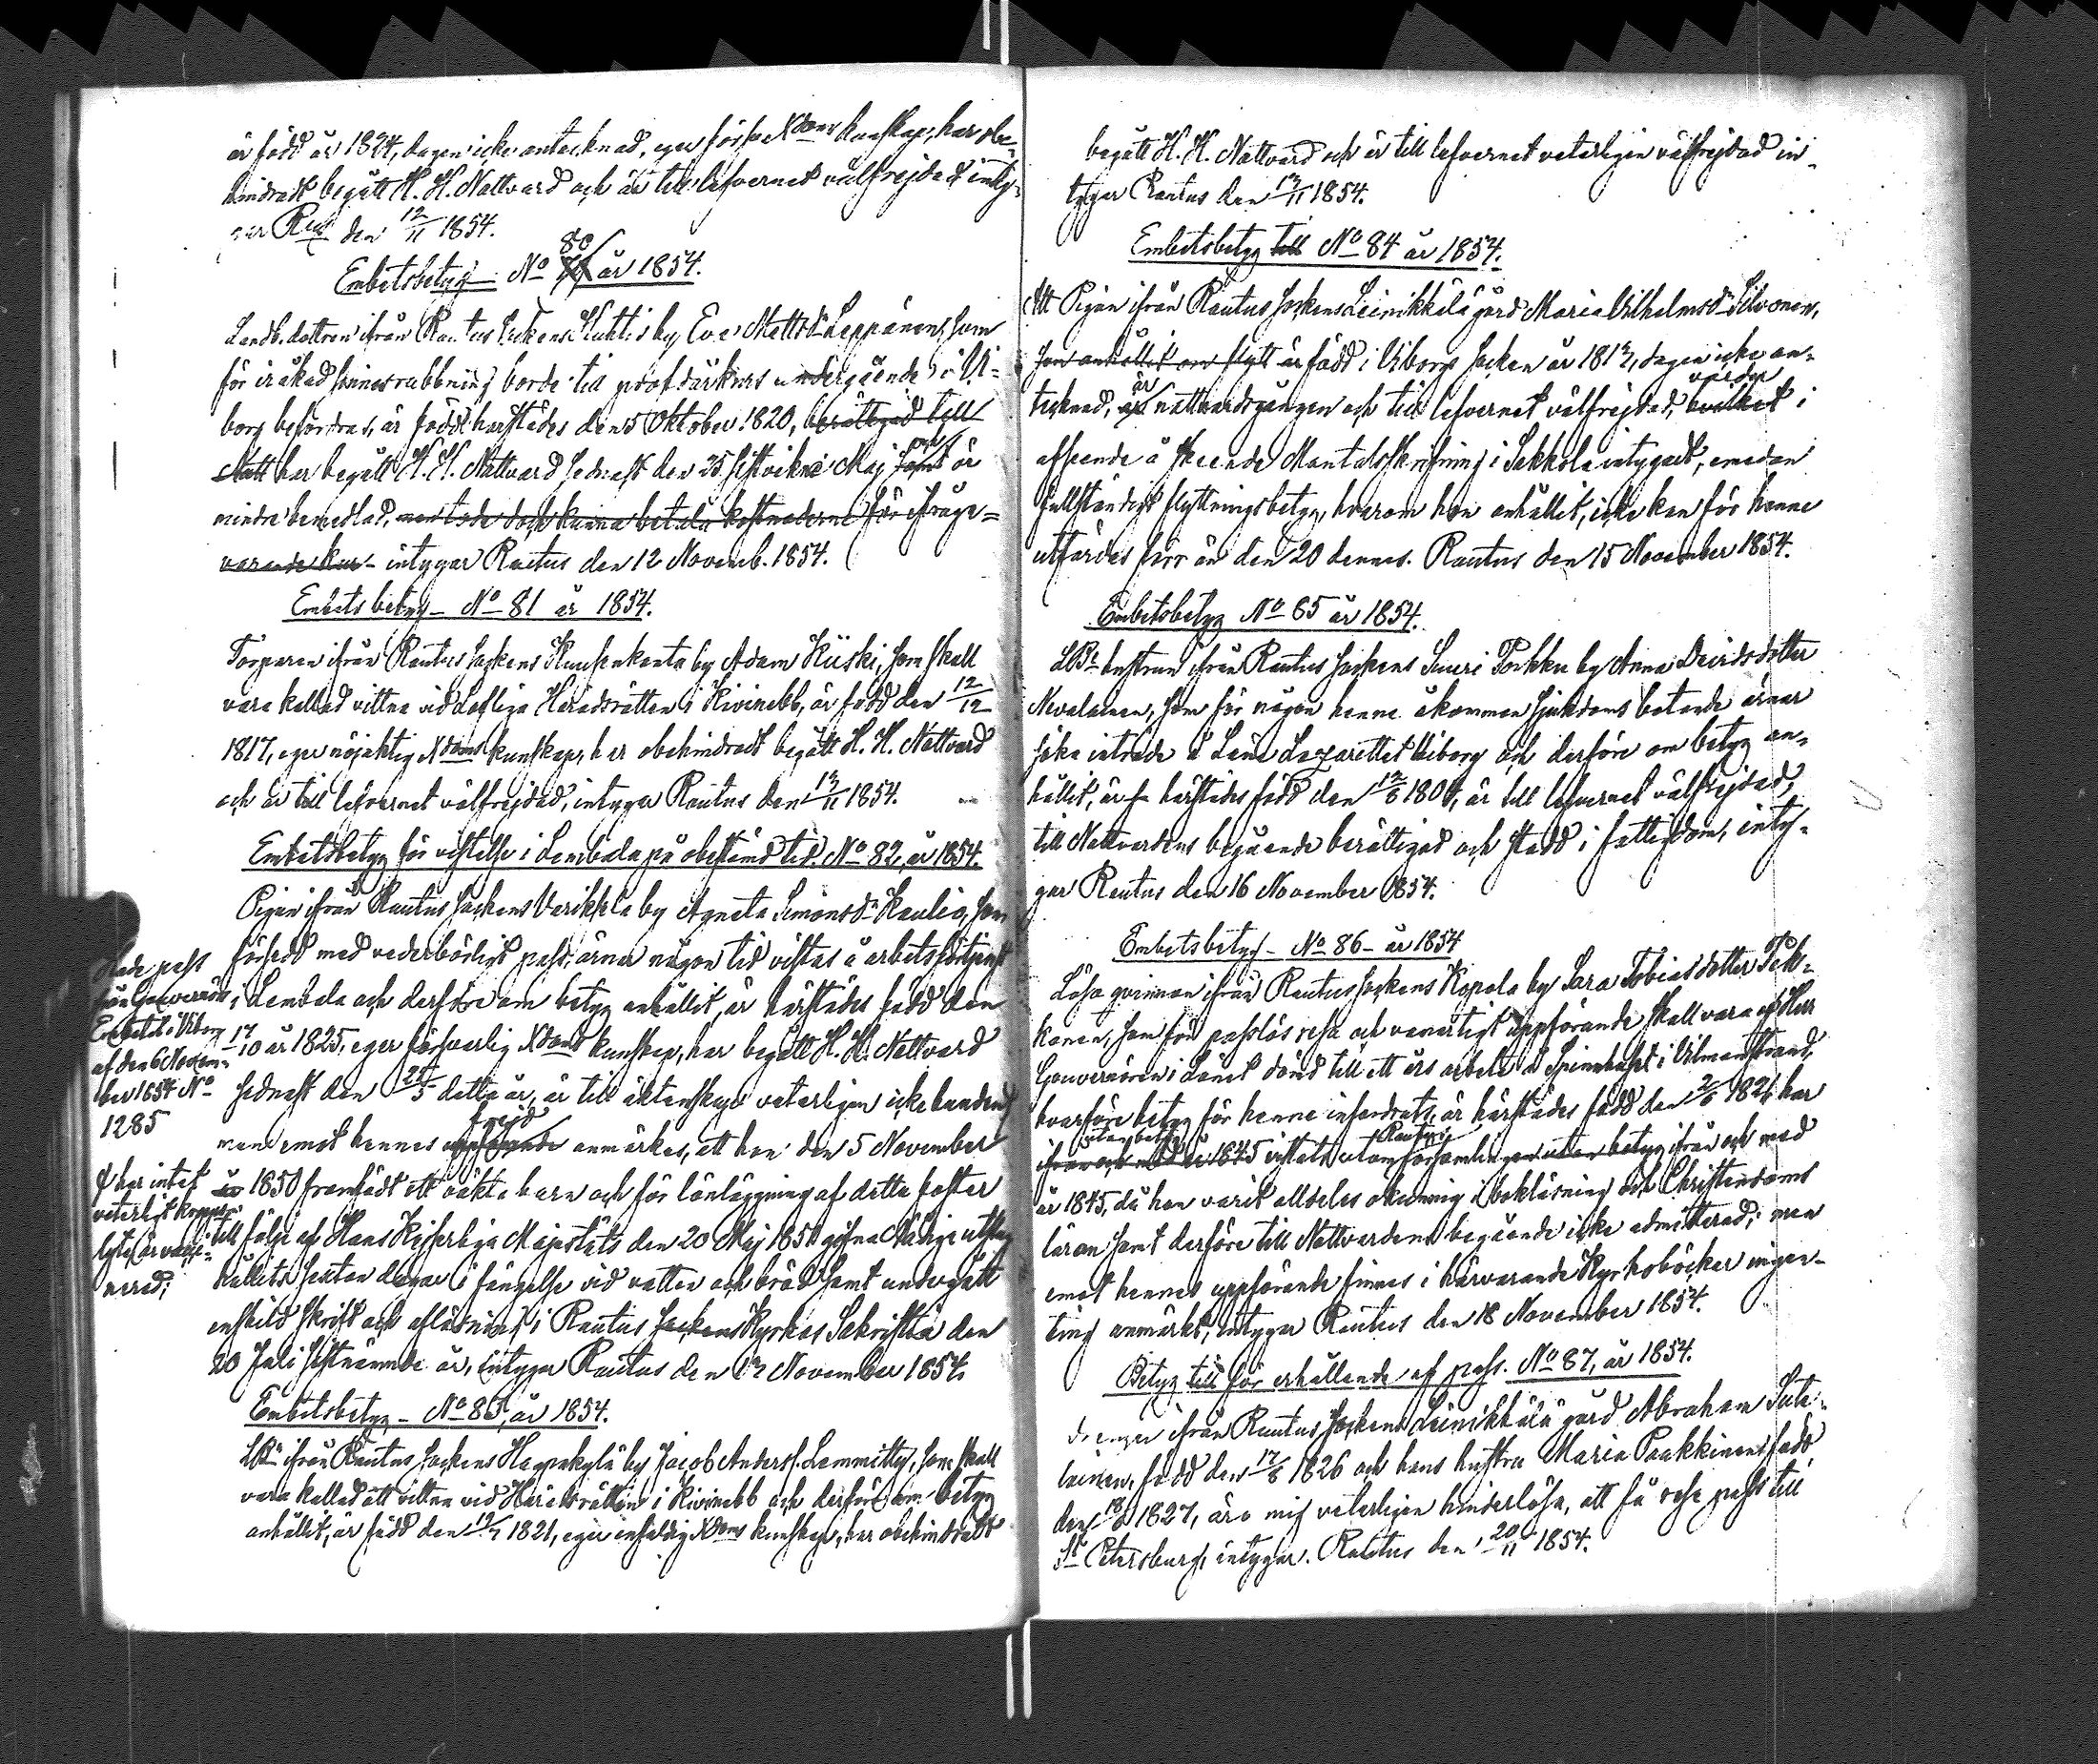 är född år 1824, dagen icke antecknad, eger förste Xdoms kunskap, har obe-
hindradt begått H. H. Nattvard och är till lefvernet välfrejdad inty-
gar Raut den 12/11 1854.
Embetsbetyg No 80 år 1854.
Landb. dottren ifrån Rautus Sockens by Eva Mattsdr Leppänen, som
för iråkad sinnesrubbning borde till undergående i Wi-
borg befordras, är född härstädes den 5 Oktober 1820, berättigad till
Natt har begått H. H. Nattvard sednast den 25 sistvikne Maj samt är
mindre bemedlad, men torde dock kunna betala kostnaderne för ifråga-
varande kur intygar Rautus den 12 Novemb. 1854.
Embetsbetyg No 81 år 1854.
Torparen ifrån Rautus Sockens Huuhenkanta by Adam Kiiski, som skall
vara kallad vittne vid Lofliga Häradsrätten i Kivinebb, är född den 12/12
1817, eger nöjaktig Xdoms kunskap, har obehindradt begått H. H. Nattvard
och är till lefvernet välfrejdad, intygar Rautus den 13/11 1854.
Embetsbetyg för vistelse i Lembala på obestämd tid. No 82, år 1854.
Pigan ifrån Rautus Sockens Varikkola by Agneta Simonsdr Kaulio, som
försedd med vederbörligt pass, ärnar någon tid vistas å arbetsförtjenst
i Lembala och derföre om betyg anhållit, är härstädes född den
17/10 år 1825, eger försvarlig Xdoms kunskap, har begått H. H. Nattvard
sednast den 25/5 detta år, är till äktenskap veterligen icke bunden,
men emot hennes frejd uppförande anmärkes, att hon den 5 November
år 1850 framfödt ett oäkta barn och för lönläggning af detta foster
till följe af Hans Kejserliga Majestäts den 20 Maj 1851 gifna Nådiga utslag
hållits sexton dagar i fängelse vid vatten och bröd samt undergått
enskild skrift och aflösning i Rautus Sockens Kyrkas Sakristia den
20 Juli sistnämnde år, intygar Rautus den 13 November 1854.
Hade pass
från Gouvernörs
Embetet i Viborg
af den 6 Novem-
ber 1854 No
1285
har intet
veterligt kropps
lyte, är vacci-
nerad;
Embetsbetyg No 83, år 1854.
LBn ifrån Rautus Sockens Haapakylä by Jacob Anderss. Lammitty, som skall
vara kallad att vittna vid Häradsrätten i Kivinebb och derföre om betyg
anhållit, är född den 19/7 1821, eger enfaldig Xdoms kunskap, har obehindradt
begått H. H. Nattvard och är till lefvernet veterligen välfrejdad in-
tygar Rautus den 13/11 1854.
Embetsbetyg till No 84 år 1854.
Att Pigan ifrån Rautus Sockens Leinikkälä gård Maria Wilhelmsdr Silvonen,
som anhållit om flytt är född i Viborgs Socken år 1813, dagen icke an-
tecknad, är nattvardsgången och till lefvernet välfrejdad, varder hvilket i
afseende å skeende Mantalsskrifning i Sakkola intygadt, emedan
fullständigt flyttningsbetyg, hvarom hon anhållit, icke kan för henne
utfärdas förr än den 20 dennes. Rautus den 15 November 1854.
Embetsbetyg No 85 år 1854.
LBs hustrun ifrån Rautus Sockens Suuri Porkku by Anna Davidsdotter
Nevalainen, som för någon henne åkommen sjukdoms botande ärnar
söka inträde å Läns Lazarettet i Wiborg och derföre om betyg an-
hållit, är härstädes född den 12/8 1804, är till lefvernet välfrejdad,
till Nattvardens begående berättigad och stadd i fattigdom, inty-
gar Rautus den 16 November 1854.
Embetsbetyg No 86 år 1854
Lösa qvinnan ifrån Rautus Sockens Kopola by Sara Tobiasdotter
som för passlös resa och vanartigt uppförande skall vara af Herr
Gouvernören i Länet dömd till ett års arbete å Spinnhuset i Wilmanstrand,
hvarföre betyg för henne infordrats, är härstädes född den 2/8 1821 har
utan betyg Rautus
ifrån och med år 1845 vistats utom församlingen utan betyg ifrån och med
år 1845, då hon varit alldeles okunnig i bokläsning och Christendoms
läran samt derföre till Nattvardens begående icke admitterad; men
emot hennes uppförande finnes i härvarande Kyrkoböcker ingen-
ting anmärkt, intygar Rautus den 18 November 1854.
Betyg till för erhållande af pass. No 87, år 1854.
Drengen ifrån Rautus Sockens Leinikkälä gård Abraham Sute-
lainen, född den 17/8 1826 och hans hustru Maria Paakkinen, född
den 1827, äro mig veterligen hinderlösa, att få rese pass till
St Petersburg, intygar. Rautus den 20/11 1854.